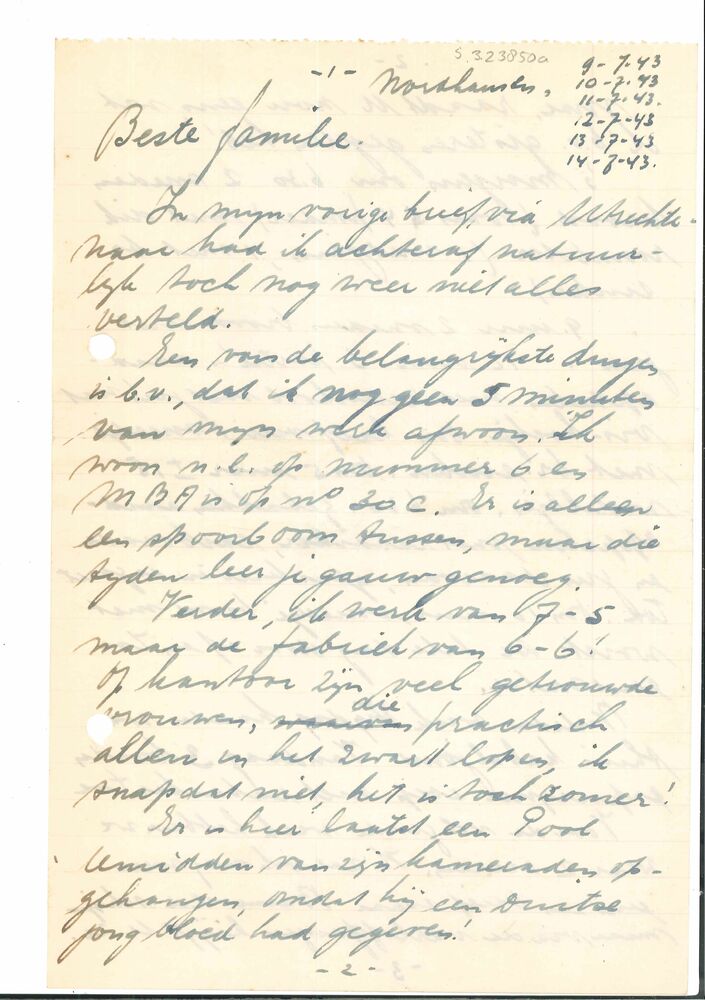 S.323850a
-1-
Nordhausen,
9-7-43
10-7-43
11-7-43.
12-7-43
13-7-43
14-7-43.
Beste familie.
In mijn vorige brief, via Utrechte-
naar had ik achteraf natuur-
lijk toch nog weer niet alles
verteld.
Een van de belangrijkste dingen
is b.v., dat ik nog geen 5 minuten
van mijn werk afwoon. Ik
woon n.l. op nummer 6 en
MBA is op no 30c. Er is alleen
een spoorboom tussen, maar die
tijden leer je gauw genoeg.
Verder, ik werk van 7-5
maar de fabriek van 6-6!
Op kantoor zijn veel getrouwde
vrouwen, die practisch
allen in het zwart lopen, ik
snap dat niet, het is toch zomer!
Er is hier laatst een Pool
temidden van zijn kameraden op-
gehangen, omdat hij een Duitse
jong bloed had gegeven!
-2-